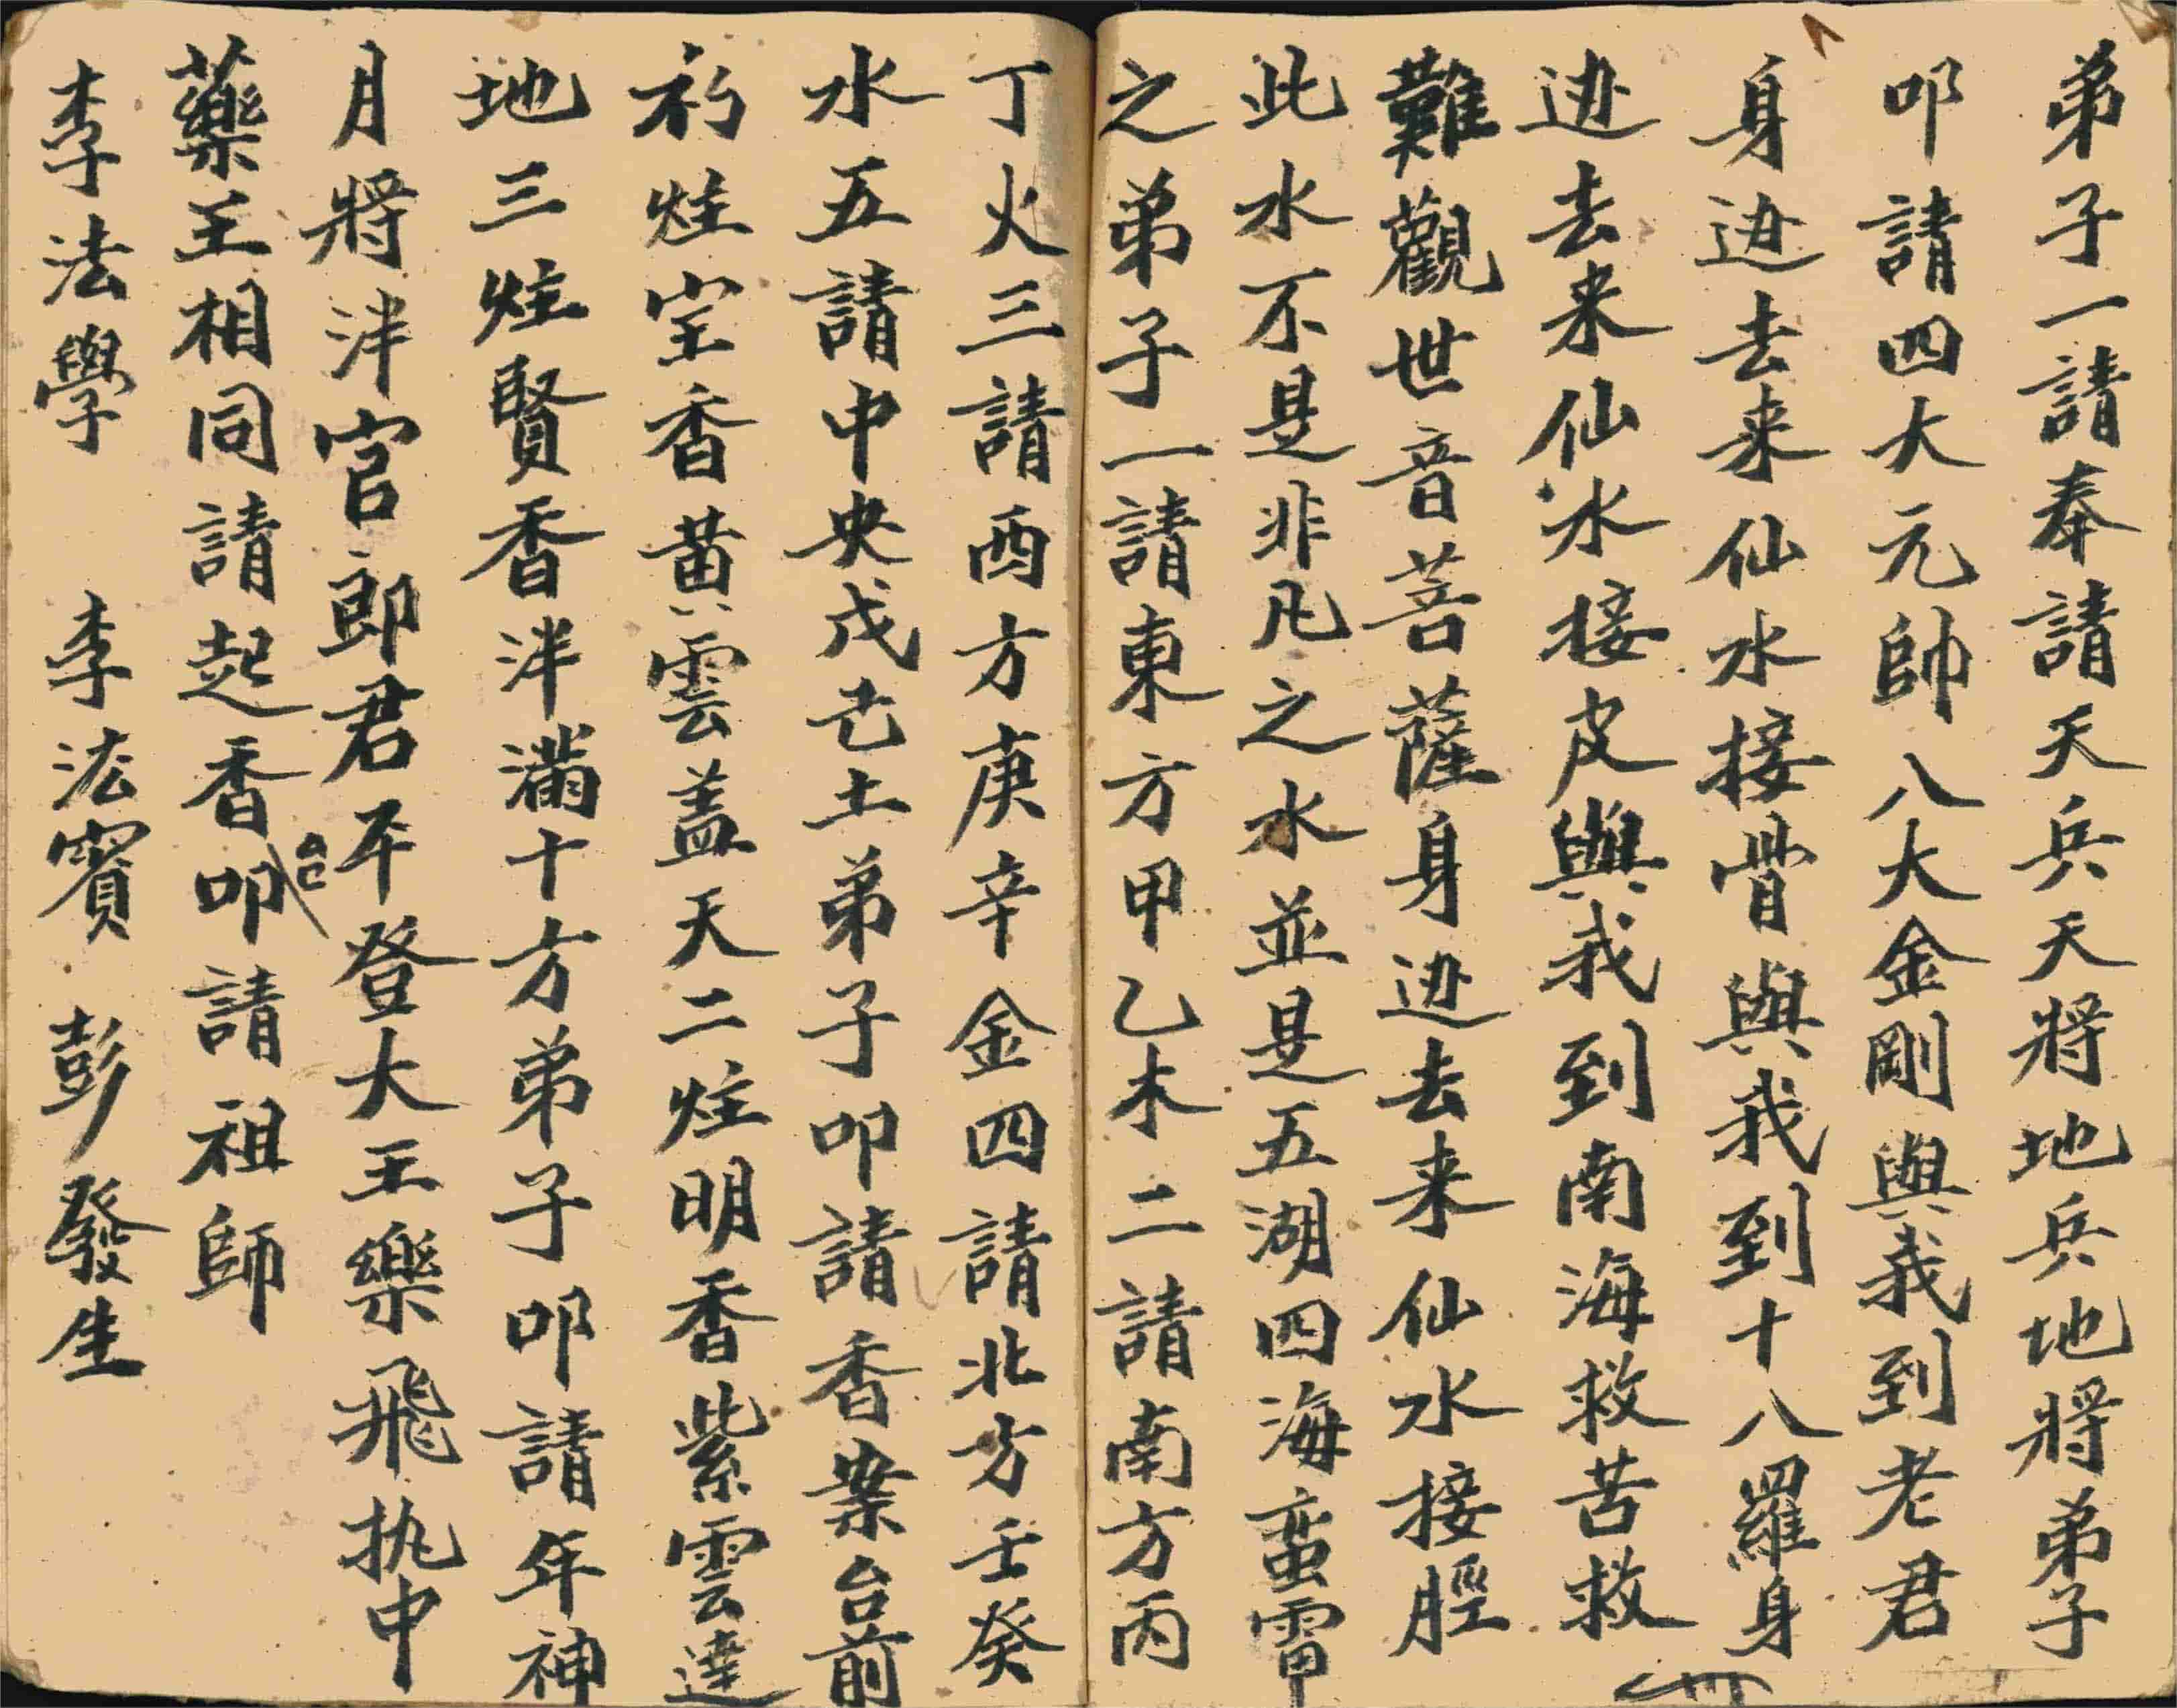 弟子一請奉請天兵天將地兵地將弟子
叩請四大元帥八大金剛與我到老君
身边去来仙水接骨與我到十八羅身
边去来仙水接皮與我到南海救苦救
難觀世音菩薩身边去来仙水接脛
此水不是非凡之水並是五湖四海蛮雷
之弟子一請東方甲乙木二請南方丙
丁火三請西方庚辛金四請北方壬癸
水五請中央戊己土弟子叩請香案台前
初炷宝香黄雲盖天二炷明香紫雲達
地三炷賢香泮滿十方弟子叩請年神
月將泮官郎君平登大王樂飛执中
藥王相同請起香叩請祖師
李法學 李法賓 彭發生